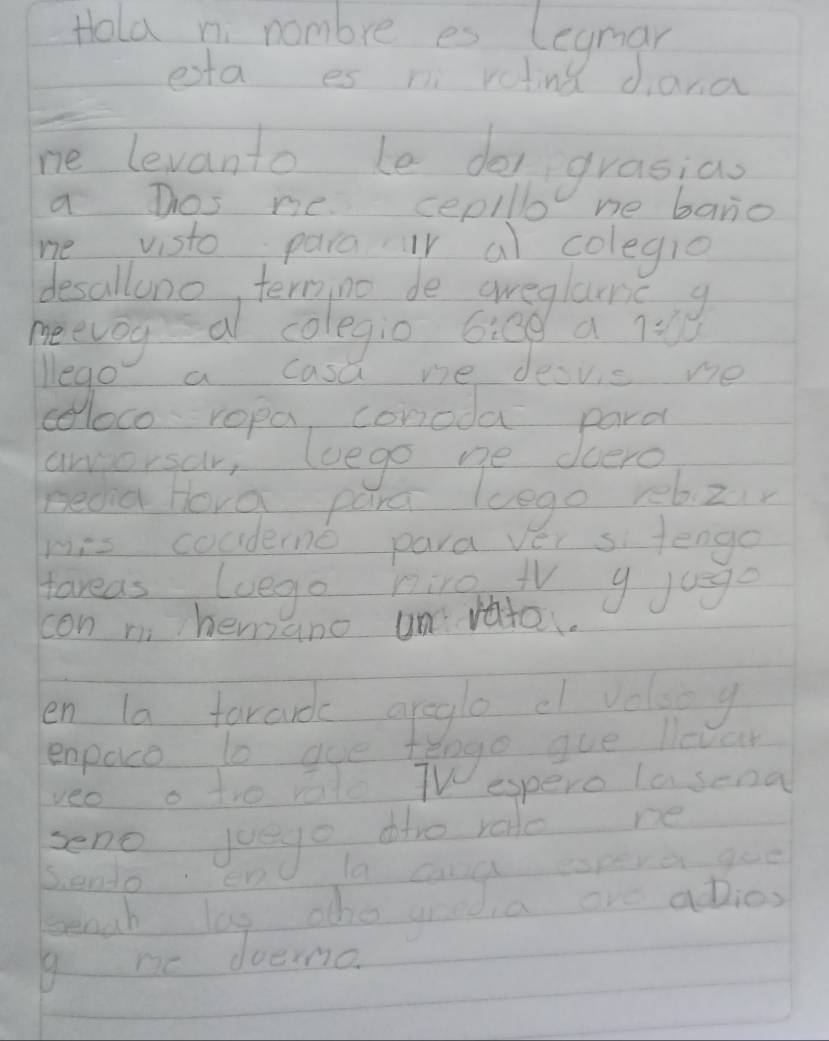 Hola mi nombre es Legmar
esta es mi rotina diaria
me levanto le doi grasias
a Dios me cepillo me baño
me visto para ir al colegio
desalluno, termino de areglarme y
me evoy al colegio 6:00 a 1:00
llego a casa me desvis me
coloco ropa comoda para
amorsar, luego me duero
media Hora para luego rebizar
mis cocuderno para ver si tengo
tareas luego miro tv y juego
con mi hermano un rato.
en la tarade areglo el volso y
enpaco lo que tengo que llevar
veo o tro rato TV espero la sena
seno juego otro rato me
siento en la cama espera que
senah las otho ymedia oro aDios
y me duermo.